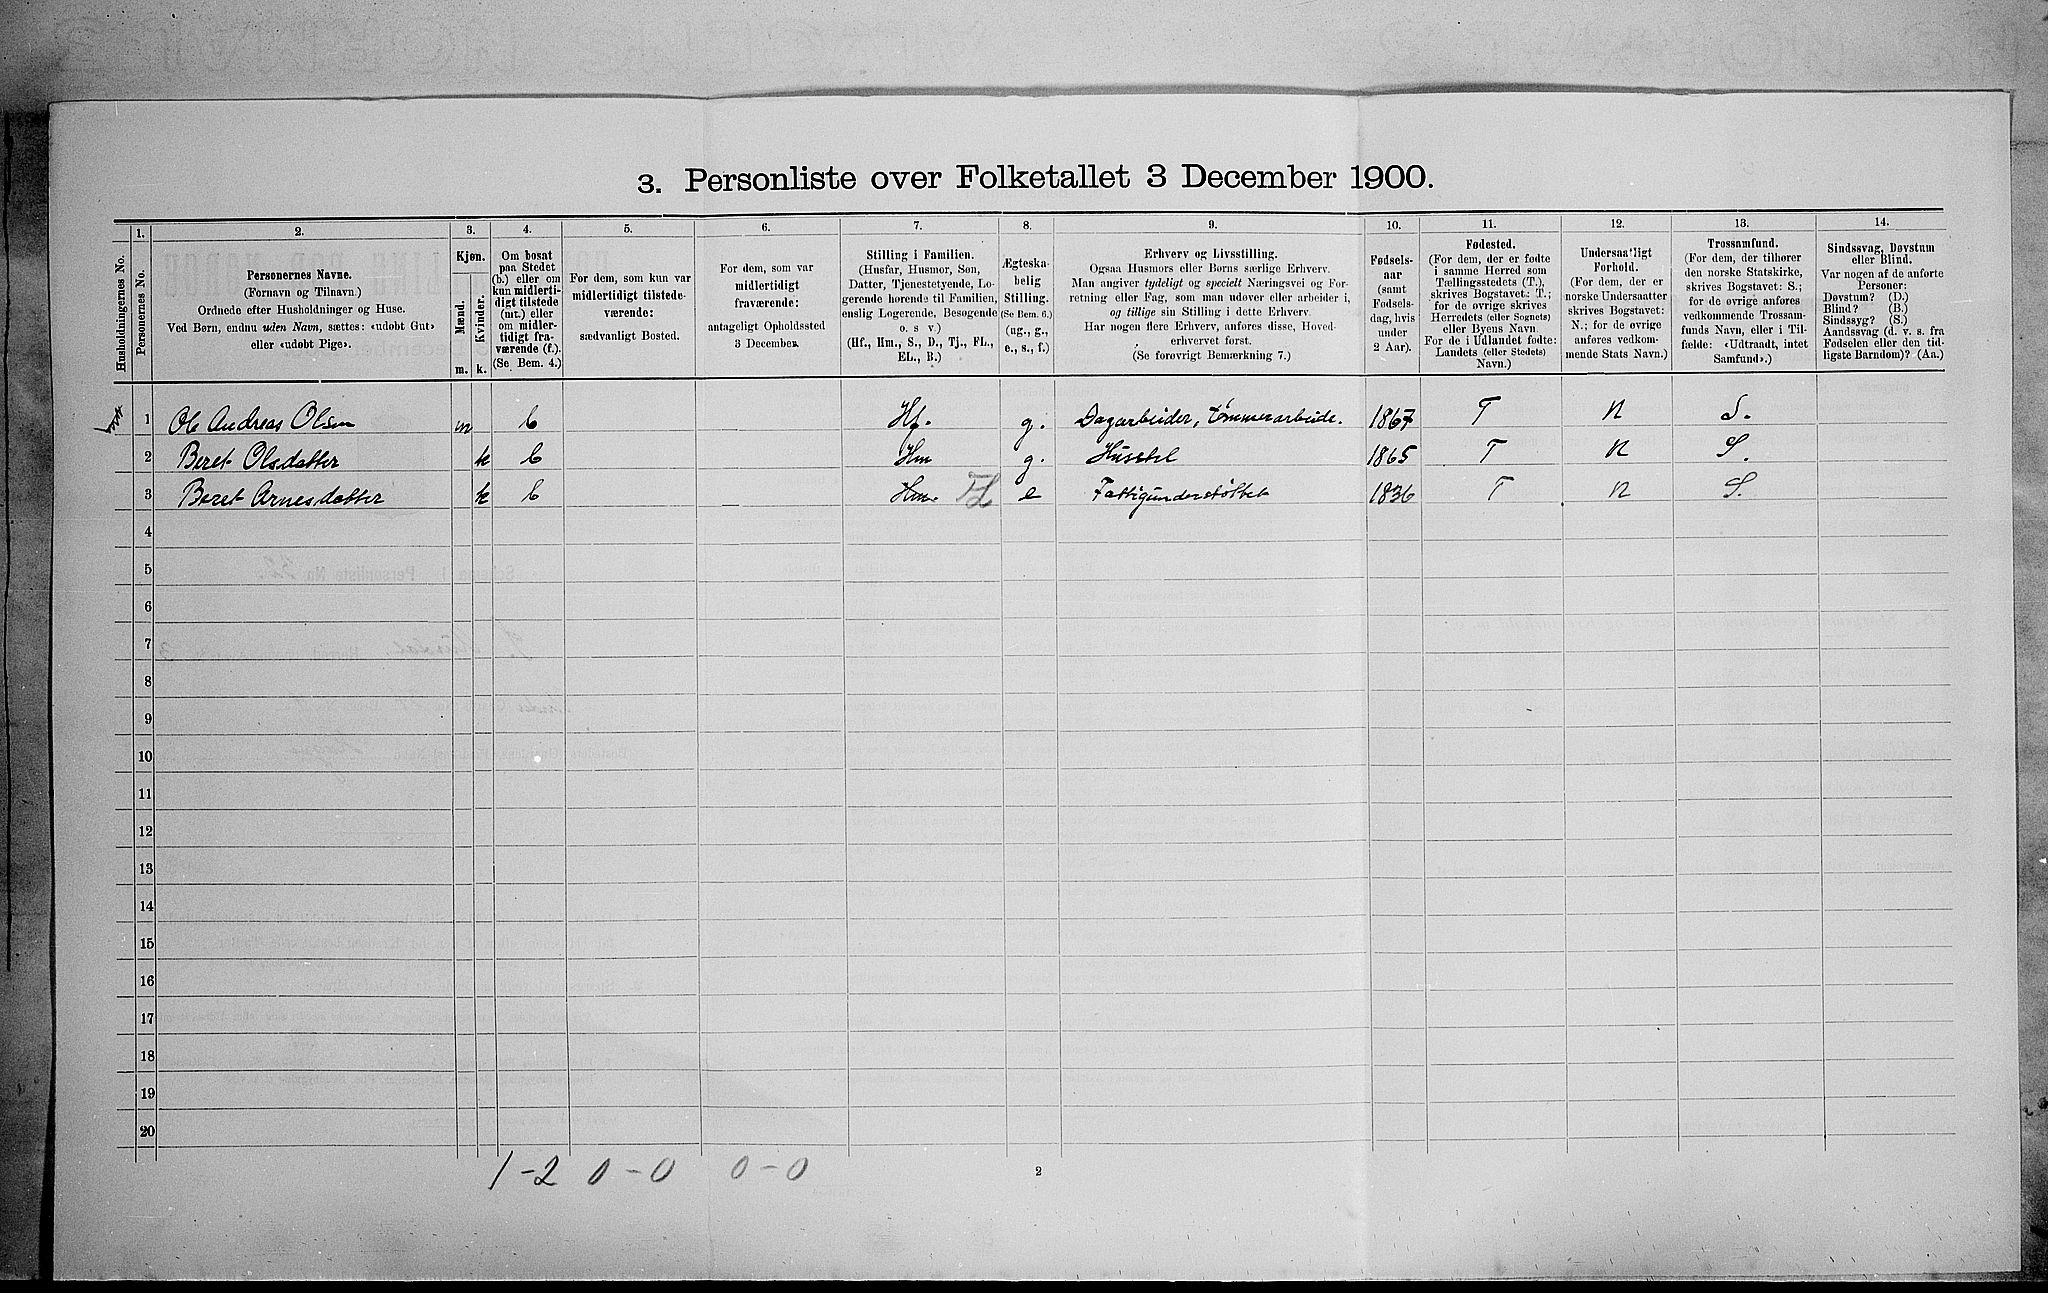 3. Personliste over Folketallet 3 December 1900.
Husholdningernes No.
1.
Personernes No.
2.
Personernes Navne.
(Fornavn og Tilnavn.)
Ordnede efter Husholdninger og Huse.
Ved Børn, endnu uden Navn, sættes: «udøbt Gut»
eller «udøbt Pige».
3.
Kjøn.
Mænd.
Kvinder.
m. k.
4.
Om bosat
paa Stedet
(b.) eller om
kun midlerti-
digt tilstede
(mt.) eller
om midler-
tidigt fra-
værende (f.).
(Se Bem. 4.)
5.
For dem, som kun var
midlertidigt tilstede-
værende:
sædvanligt Bosted.
6.
For dem, som var
midlertidigt
fraværende:
antageligt Opholdssted
3 December.
7.
Stilling i Familien.
(Husfar, Husmor, Søn,
Datter, Tjenestetyende, Lo-
gerende hørende til Familien,
enslig Logerende, Besøgende
o. s v.)
(Hf., Hm., S., D., Tj., FL.,
EL., B.)
8.
Ægteska-
belig
Stilling.
(Se Bem. 6.)
(ug., g.,
e., s., f.)
9.
Erhverv og Livsstilling.
Ogsaa Husmors eller Børns særlige Erhverv.
Man angiver tydeligt og specielt Næringsvei og For-
retning eller Fag, som man udøver eller arbeider i,
og tillige sin Stilling i dette Erhverv.
Har nogen flere Erhverv, anføres disse, Hoved-
erhvervet først.
(Se forøvrigt Bemærkning 7.)
10.
Fødsels-
aar
(samt
Fødsels-
dag, hvis
under
2 Aar).
11.
Fødested.
(For dem, der er fødte
i samme Herred som
Tællingsstedets (T.),
skrives Bogstavet: T.;
for de øvrige skrives
Herredets (eller Sognets)
eller Byens Navn.
For de i Udlandet fødte:
Landets (eller Stedets)
Navn.)
12.
Undersaatligt
Forhold.
(For dem, der er
norske Undersaatter
skrives Bogstavet:
N.; for de øvrige
anføres vedkom-
mende Stats Navn.)
13.
Trossamfund.
(For dem, der tilhører
den norske Statskirke,
skrives Bogstavet: S.;
for de øvrige anføres
vedkommende Trossam-
funds Navn, eller i Til-
fælde: «Udtraadt, intet
Samfund».)
14.
Sindssvag, Døvstum
eller Blind.
Var nogen af de anførte
Personer:
Døvstum? (D.)
Blind? (B.)
Sindssyg? (S.)
Aandssvag (d. v. s. fra
Fødselen eller den tid-
ligste Barndom)? (Aa.)
1 Ole Andreas Olsen m b Hf. g. Dagarbeider, tømmerarbeide. 1867 T N S.
2 Beret Olsdatter k b Hm g. Husstel 1865 T N S.
3 Beret Arnesdatter k b Hm. FL e Fattigunderstøttet 1836 T N S.
4
5
6
7
8
9
10
11
12
13
14
15
16
17
18
19
20
1-2 0-0 0-0
2